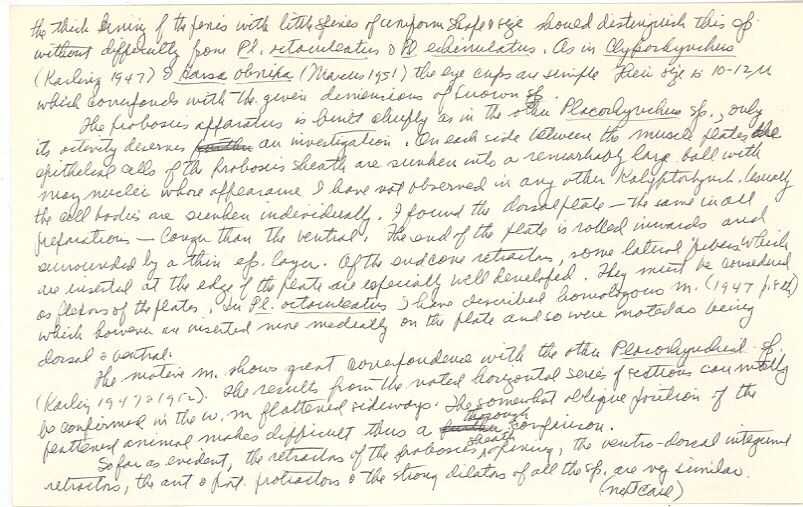 the thick lining of the penis with little spines of uniform shape & size should distinguish this sp.
without difficulty from Pl. octaculeatus & Pl. echinulatus. As in Clyporhynchus
(Karling 1947) & Barsa obonika (Marcus 1951) the eye cups are simple. Their size is 10-12 µ
which corresponds with the given dimensions of known sp.
The proboscis apparatus is built chiefly as in the other Placorhynchus sp., only
its activity deserves an investigation. On each side between the muscle plates the
epithelial cells of the proboscis sheath are sunken into a remarkably large ball with
many nuclei whose appearance I have not observed in any other Kalyptorhynch. Usually
the cell bodies are sunken individually. I found the dorsal plate — the same in all
preparations — longer than the ventral. The end of the plate is rolled inwards and
surrounded by a thin ep. layer. Of the endcone retractors, some lateral fibers which
are inserted at the edge of the plate are especially well developed. They must be considered
as flexors of the plates. In Pl. octaculeatus I have described homologous m. (1947 p. 8
which however are inserted more medially on the plate and so were noted as being
dorsal & ventral.
The motive m. shows great correspondence with the other Placorhynchid sp.
(Karling 1947 & 1952). The results from the noted horizontal series of sections can mostly
be confirmed in the w. m flattened sideways. The somewhat oblique position of the
flattened animal makes difficult thus a thorough comparison.
So far as evident, the retractors of the proboscis sheath opening, the ventro-dorsal integument
retractors, the ant & post. protractors & the strong dilators of all the sp. are very similar.
(next card)